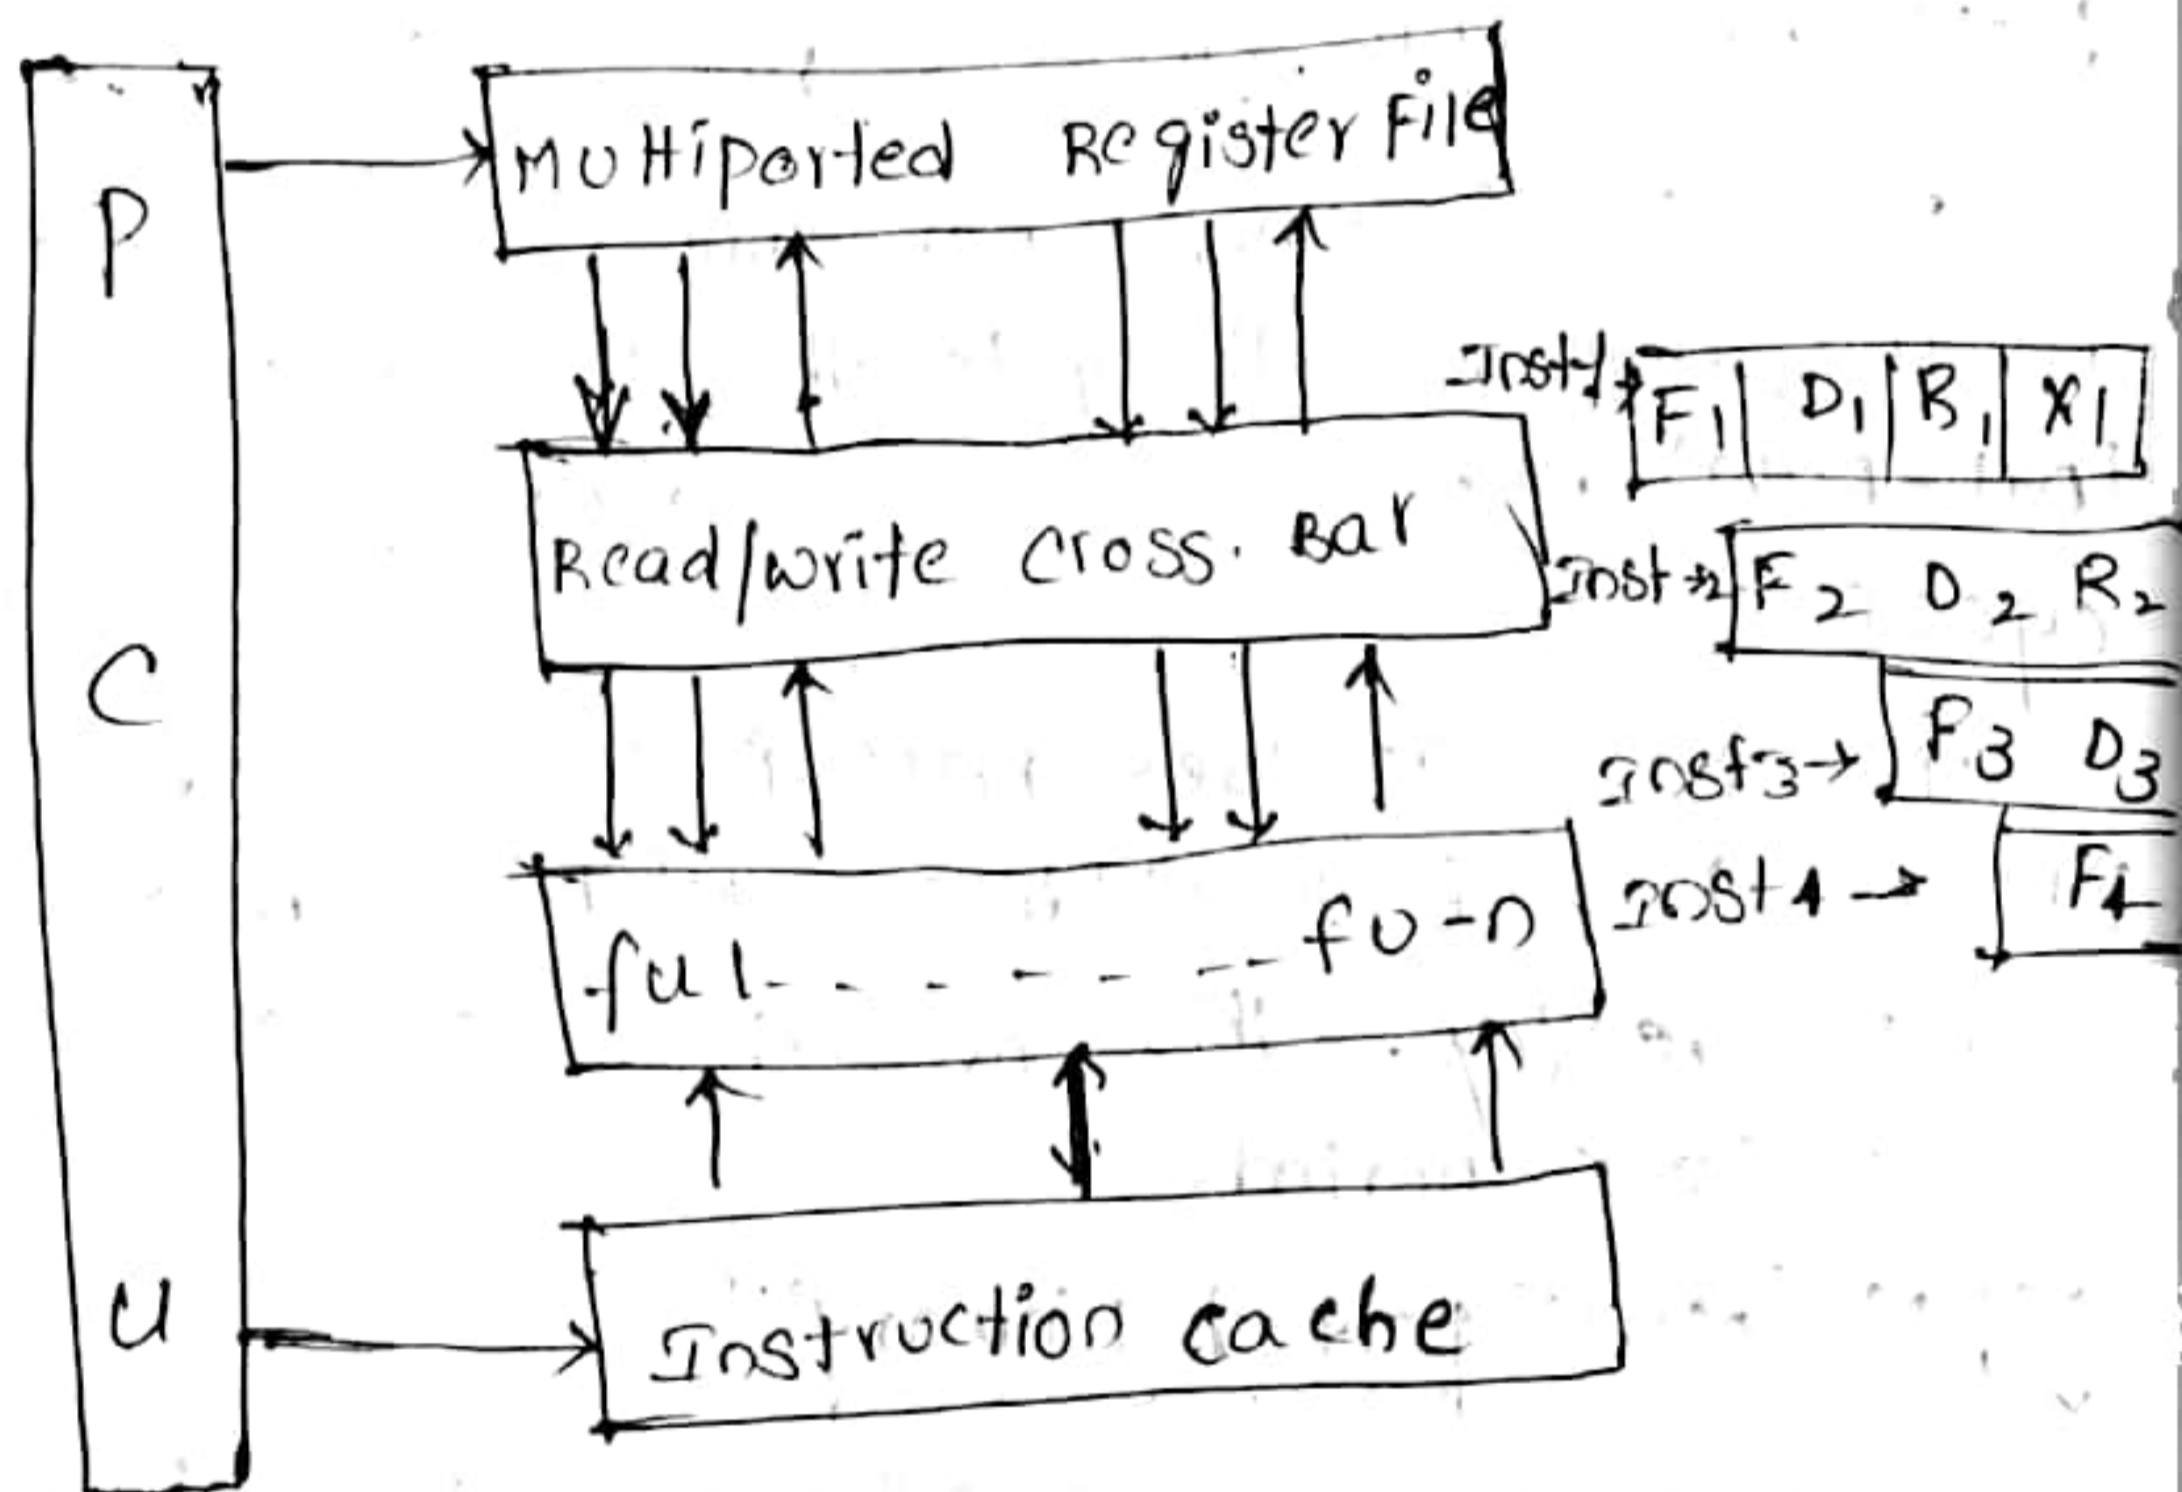 P
C
U
Multiported Register File
Read/write cross. Bar
fu1 - - - - - - - fu-n
Instruction cache
Inst1→ F1 D1 R1 X1
Inst→2 F2 D2 R2
Inst3→ F3 D3
Inst4→ F4